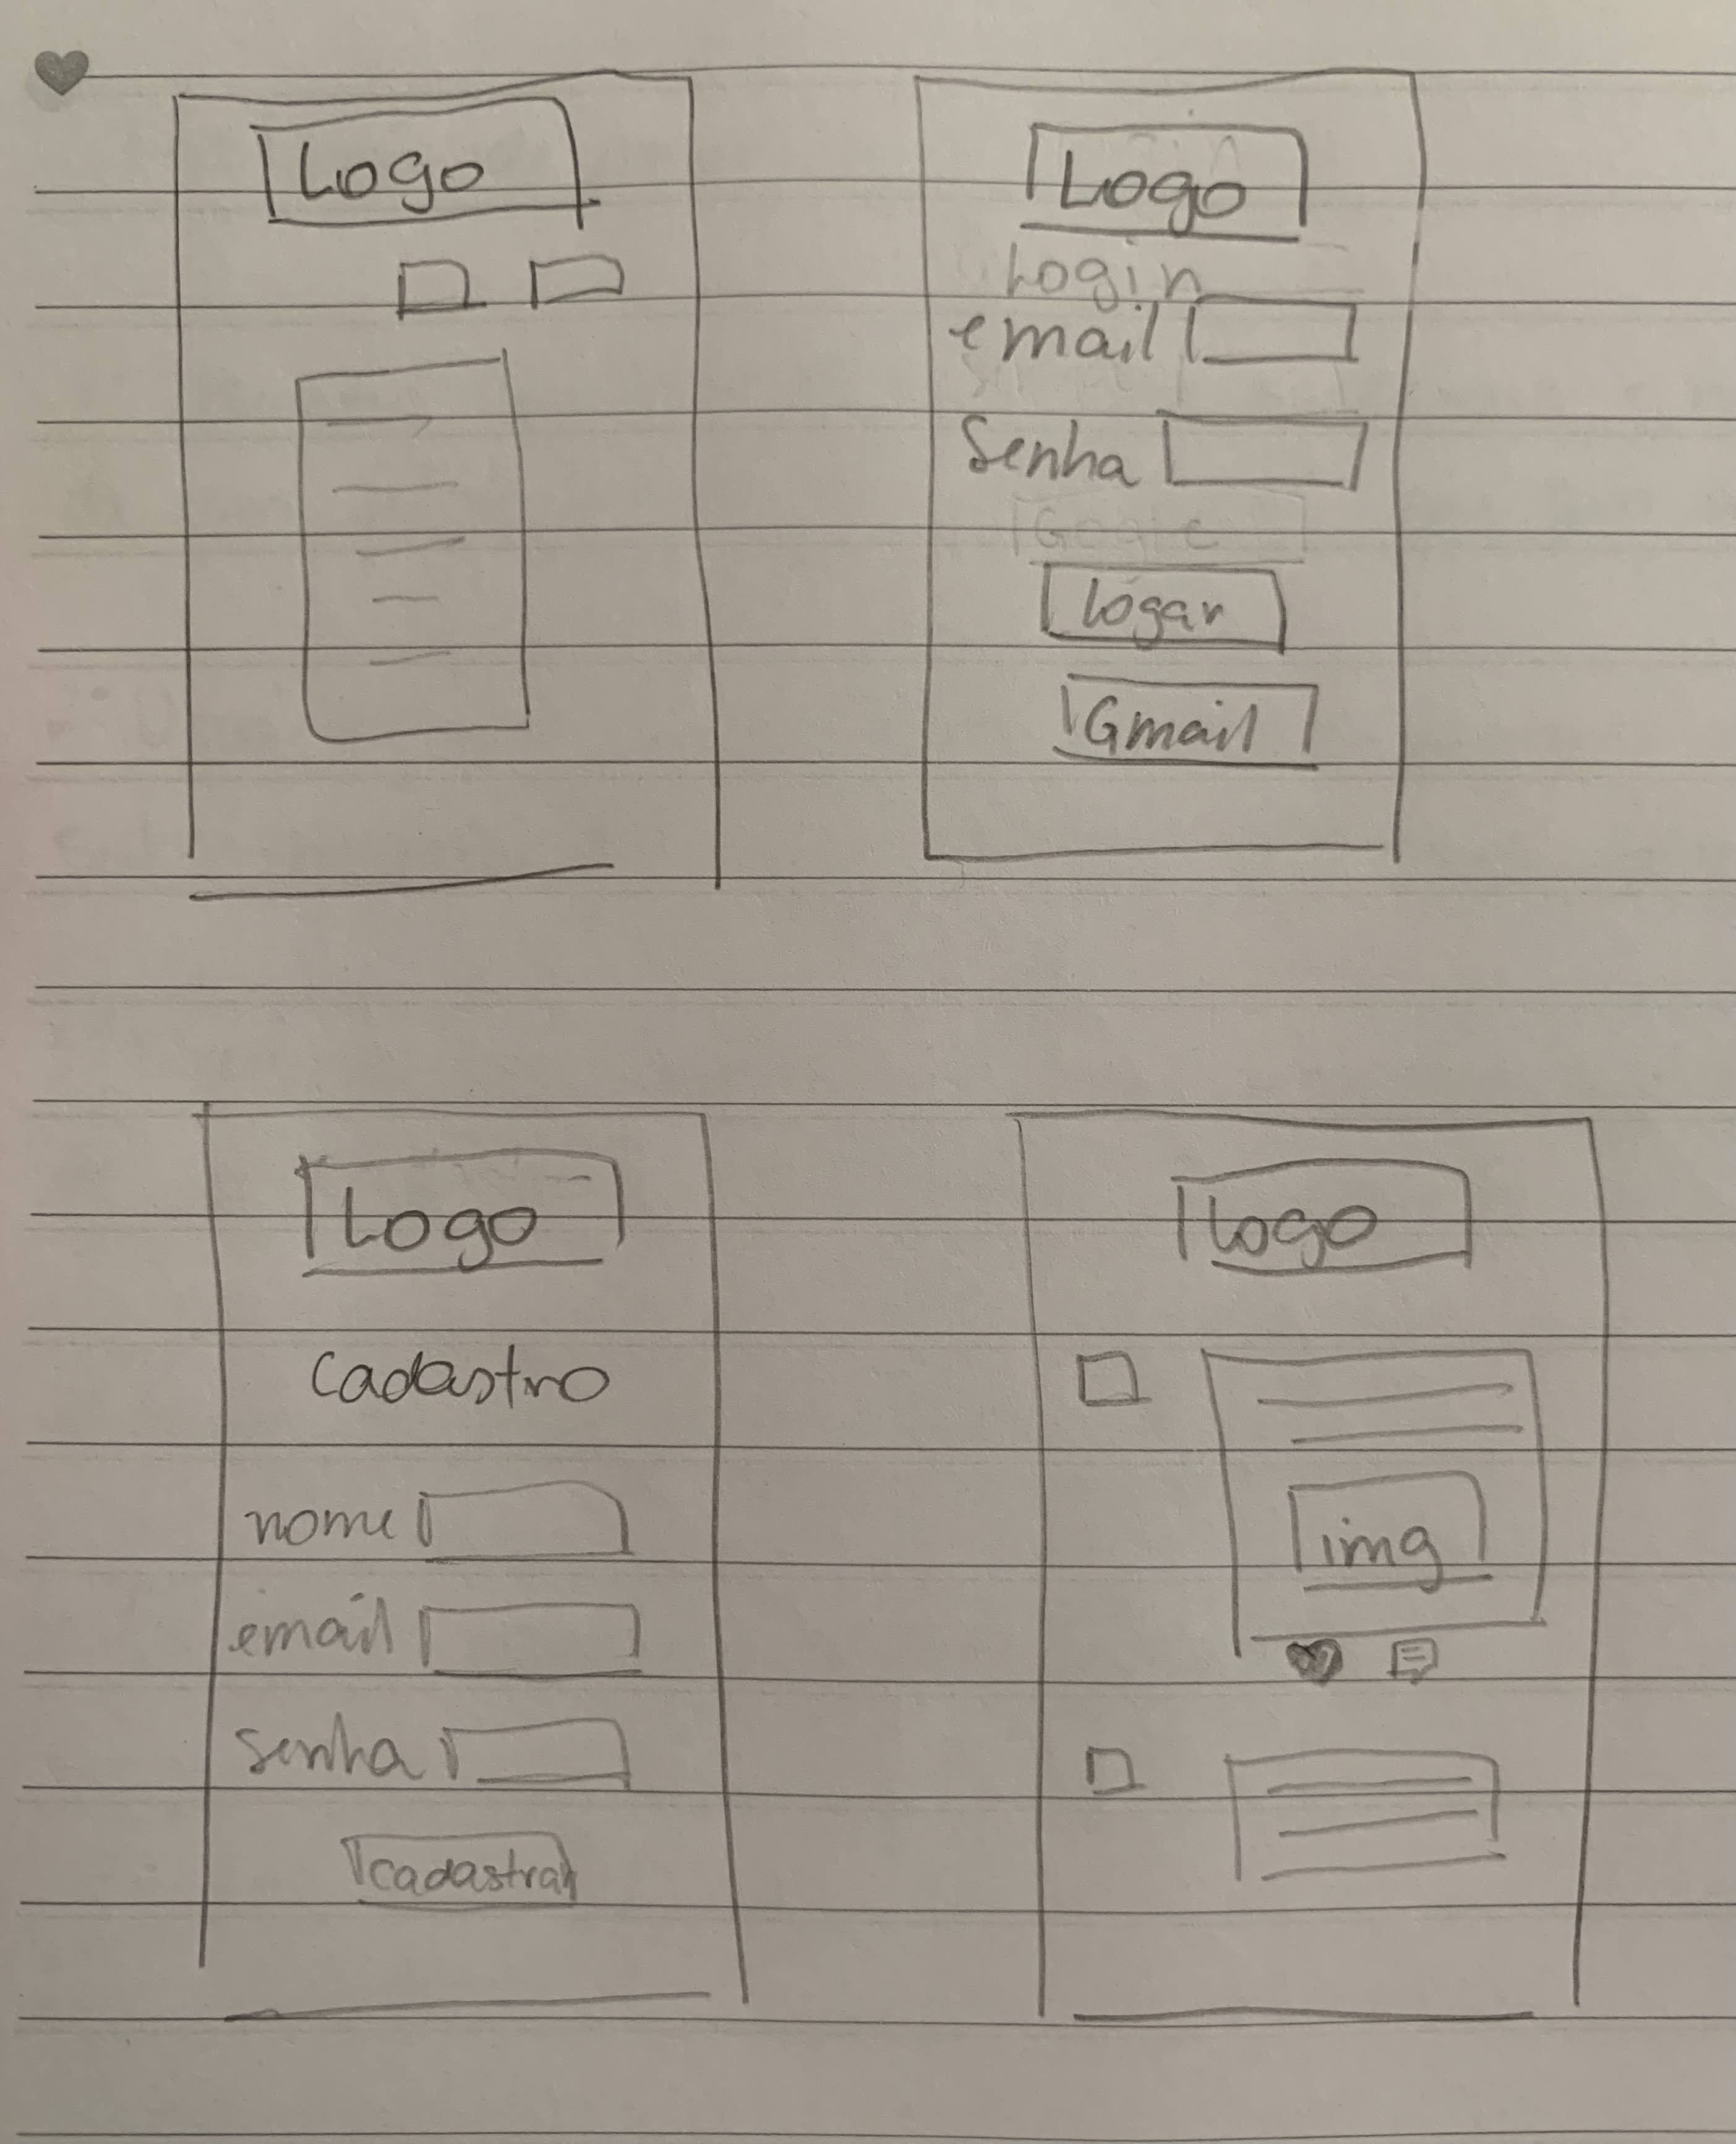 Logo
Logo
Login
email
Senha
Logar
Gmail
Logo
Cadastro
nome
email
senha
cadastrar
Logo
img